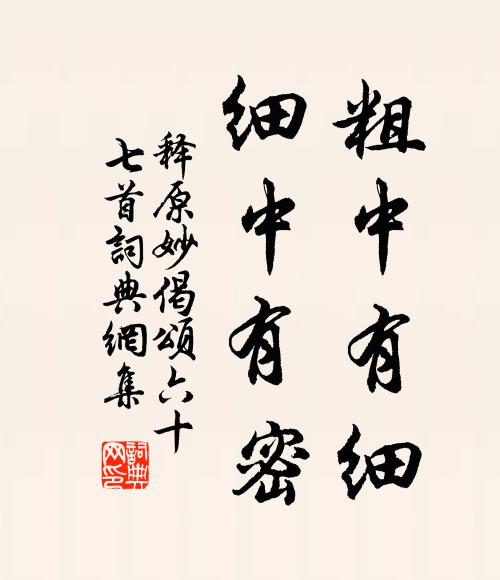 粗中有细
细中有密
释原妙偈頌六十
七首詞典網集
詞典网印